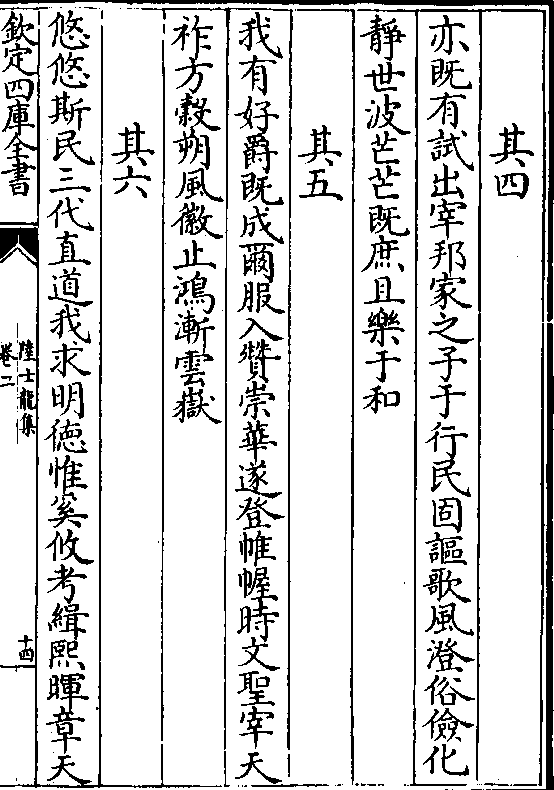 其四
亦既有試出宰邦家之子于行民固謳歌風澄俗儉化
靜世波芒芒既庶且樂于和
其五
我有好爵既成爾服入贊崇華遂登帷幄時文聖宰天
祚方穀朔風徽止鴻漸雲嶽
其六
悠悠斯民三代直道我求明德惟奚攸考緝熙暉章天
欽定四庫全書
陸士龍集
卷二
十四